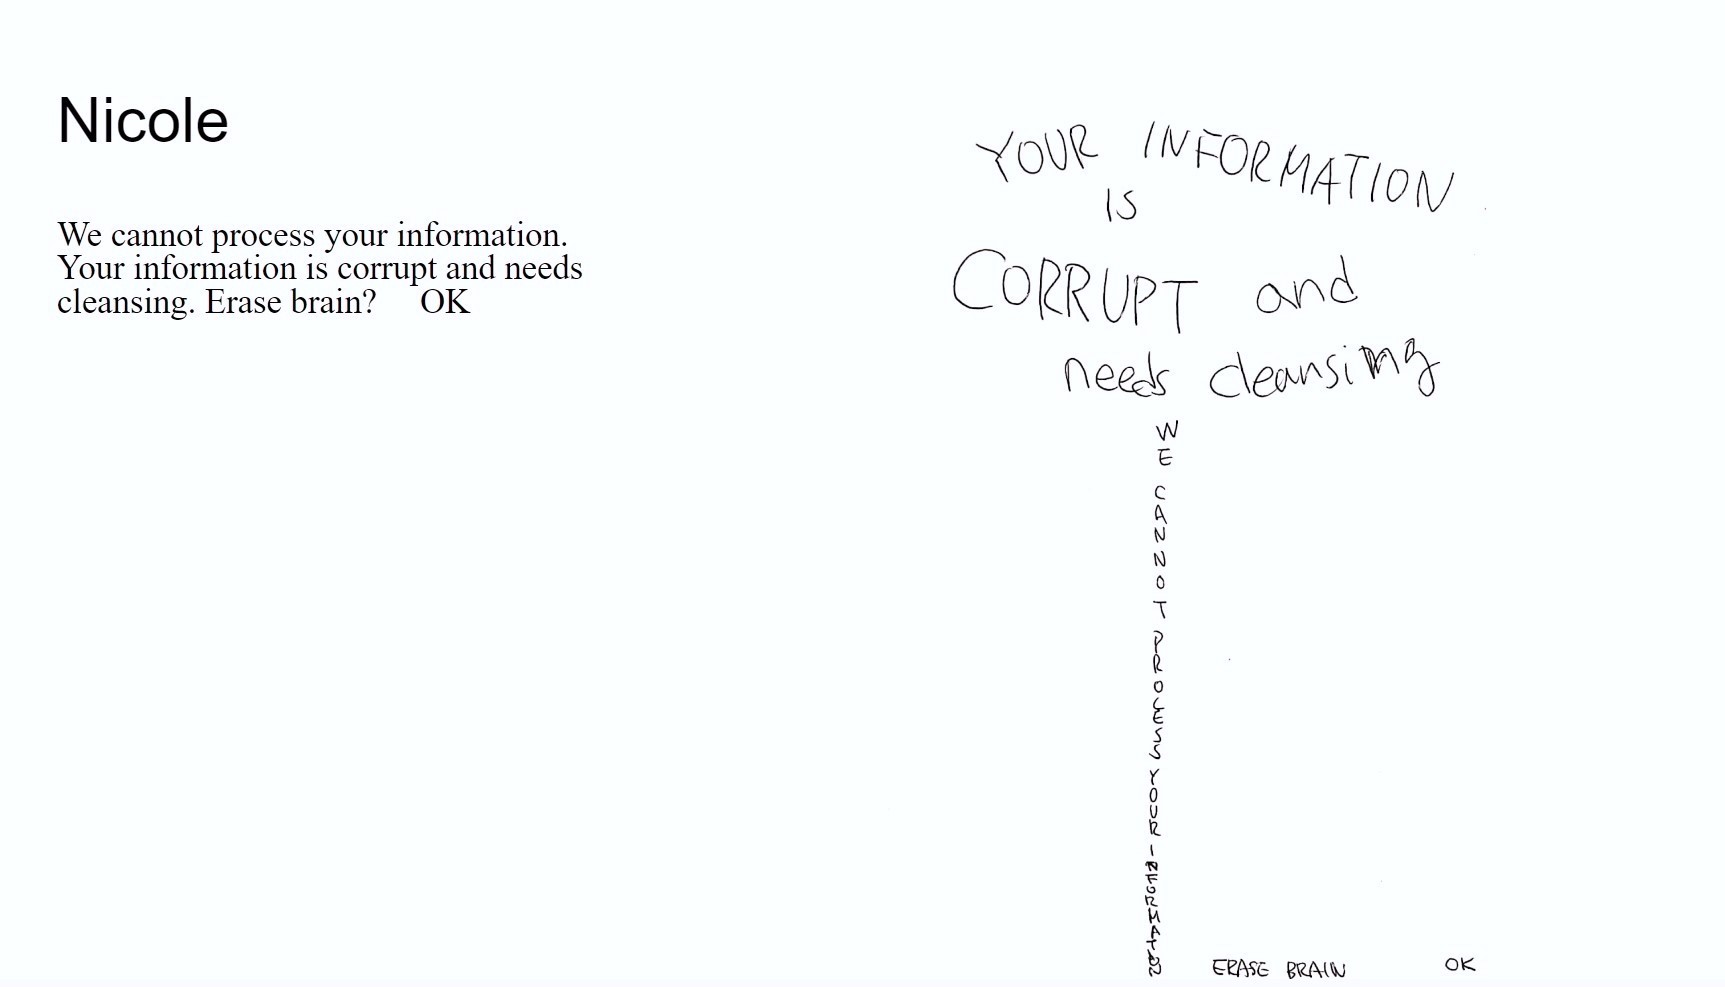 Nicole
We cannot process your information.
Your information is corrupt and needs
cleansing. Erase brain? OK
YOUR INFORMATION
IS
CORRUPT and
needs cleansing
WE CANNOT PROCESS YOUR INFORMATION
ERASE BRAIN OK